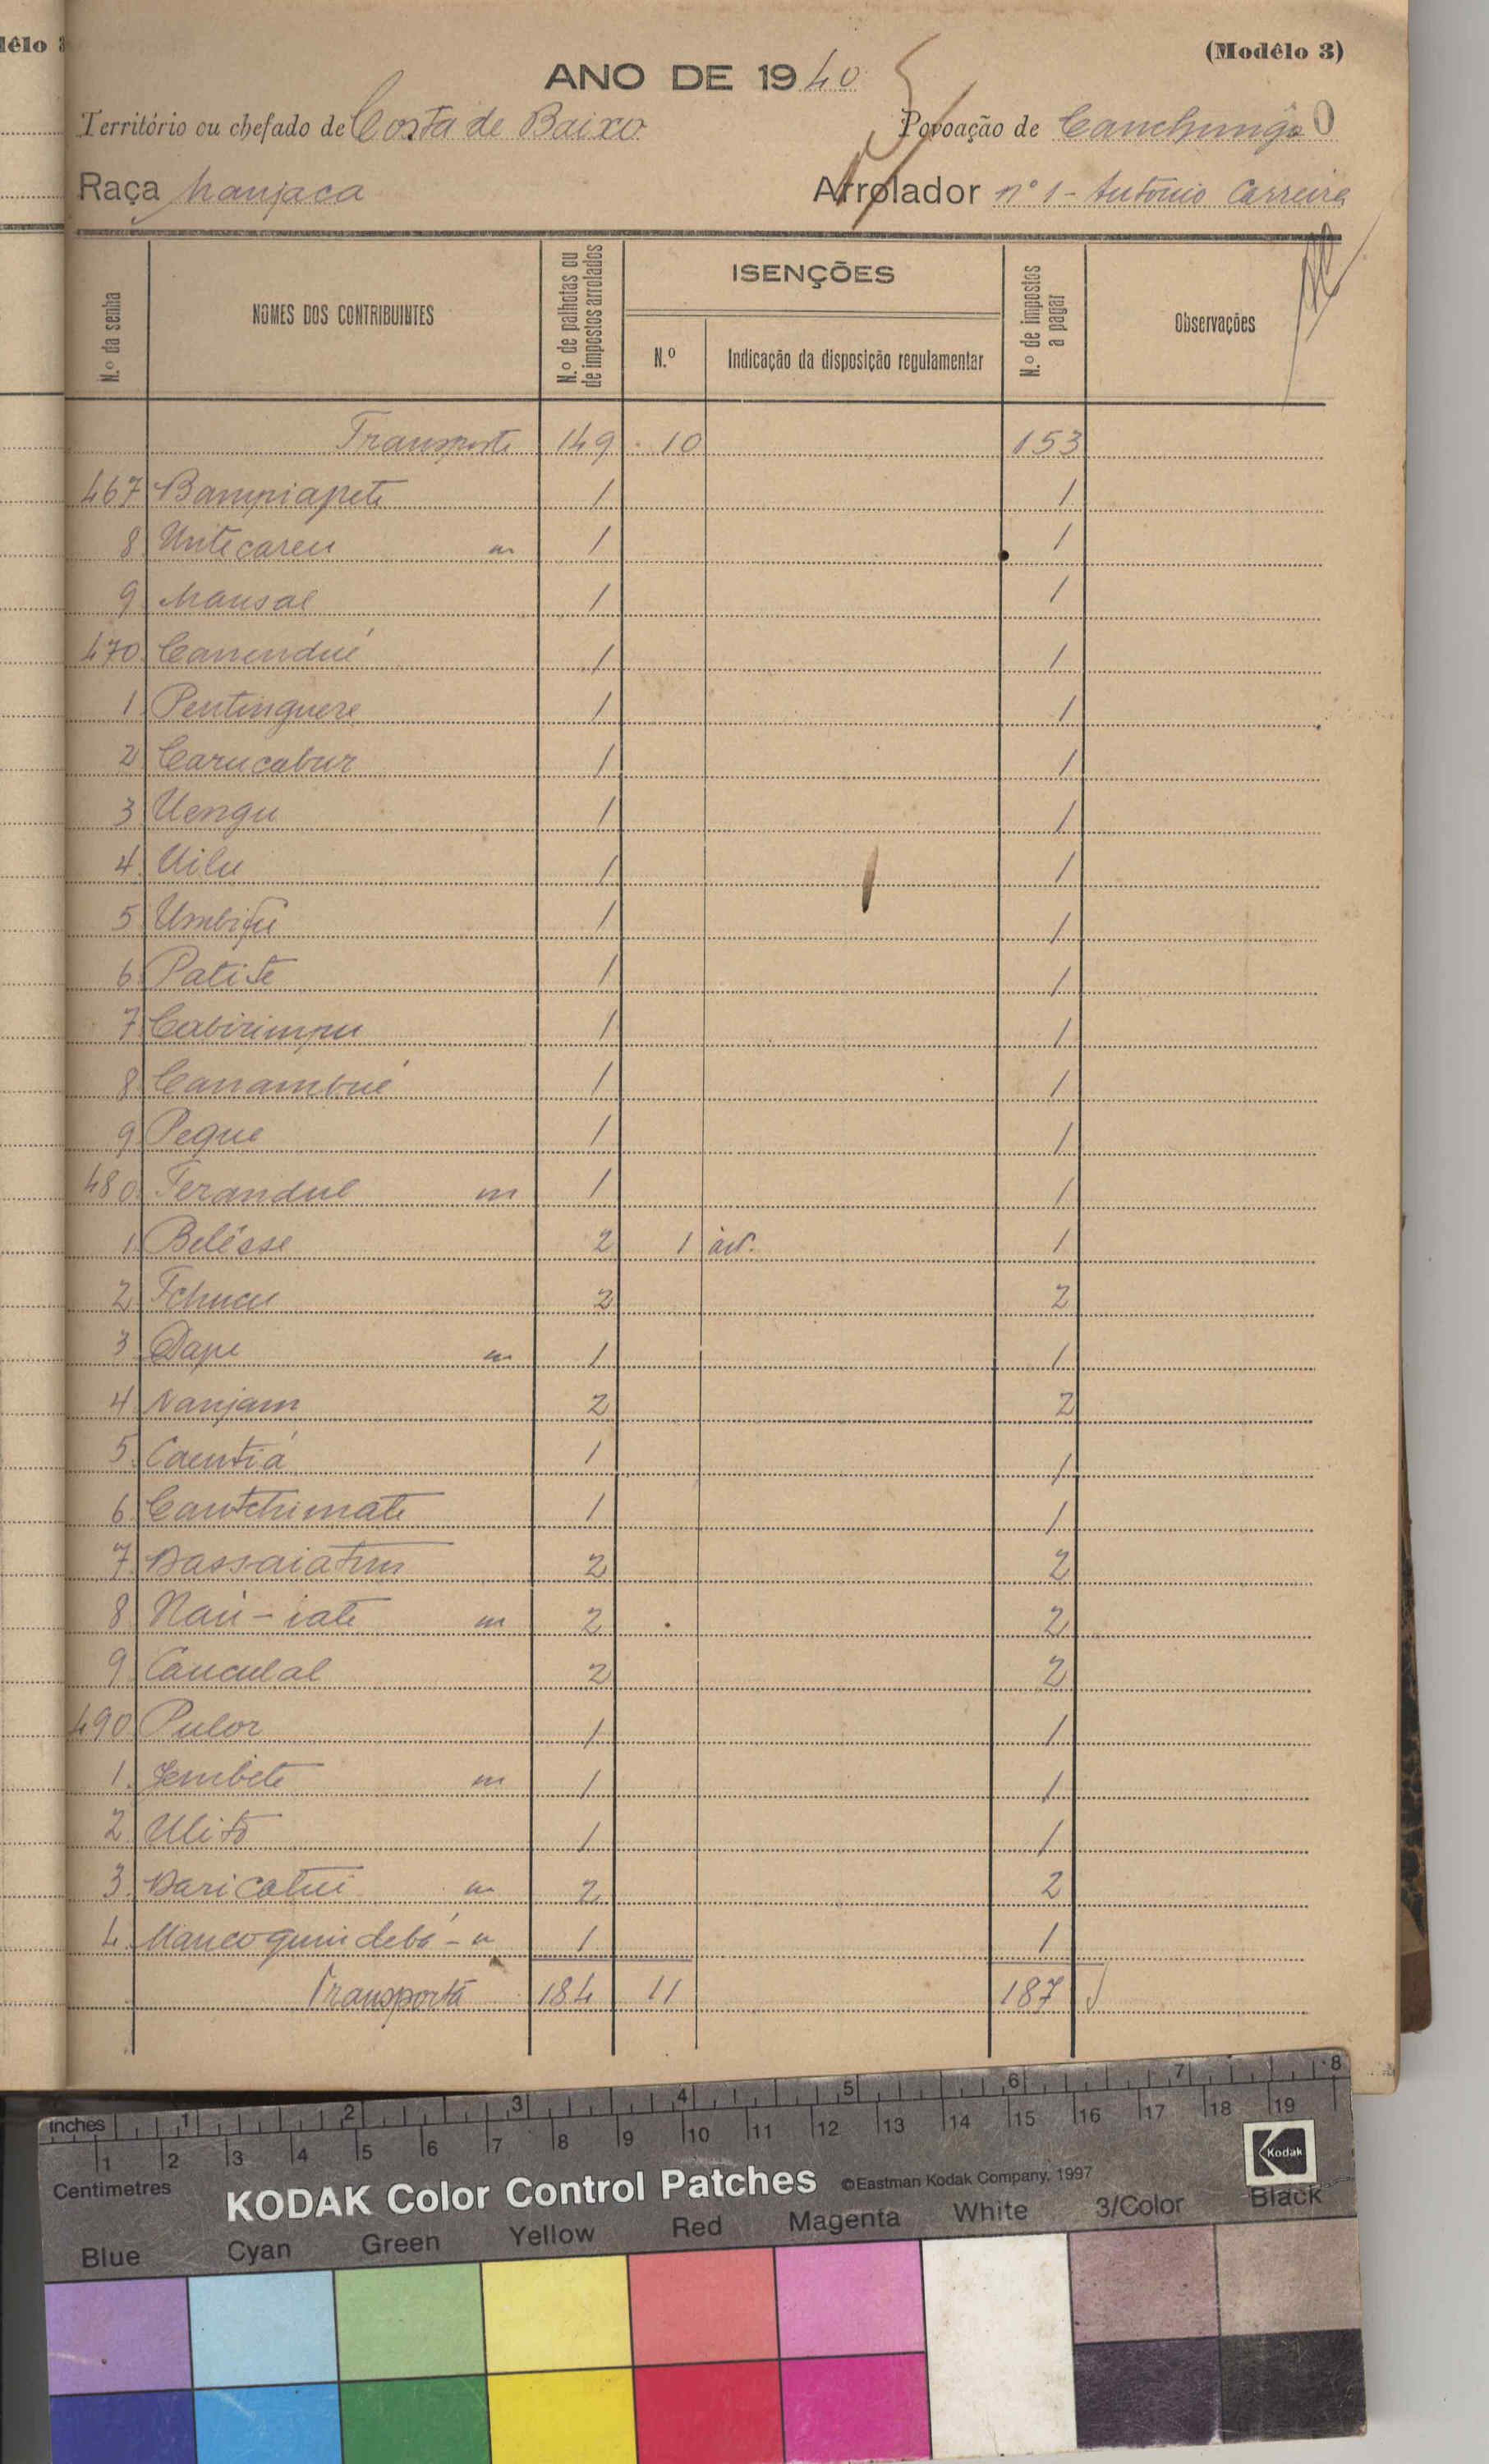 lêlo 3
(Modêlo 3)
ANO DE 1940
Território ou chefado de Costa de Baixo Povoação de Canchungo
Raça Manjaca Arrolador nº 1 - António Carreira
N.º da senha NOMES DOS CONTRIBUINTES N.º de palhotas ou de impostos arrolados ISENÇÕES N.º de impostos a pagar Observações
N.º Indicação da disposição regulamentar
Transporte 149 10 153
467 Bampiapete 1 1
8 Untecareu m 1 1
9 Mansal 1 1
470 Canendué 1 1
1 Pentinguere 1 1
2 Carucabur 1 1
3 Uengu 1 1
4 Uilu 1 1
5 1 1
6 Patite 1 1
7 Cabirimpu 1 1
8 Canambué 1 1
9 Peque 1 1
480 Terandul m 1 1
1 Belésse 2 1 1
2 Tchucu 2 2
3 Dape m 1 1
4 Nanjam 2 2
5 Caentiá 1 1
6 Cantchimate 1 1
7 Dassaiatum 2 2
8 Naú-iate m 2 2
9 Cauculal 2 2
490 Pulor 1 1
1 Jembete m 1 1
2 Ulito 1 1
3 Daricatui m 2 2
4 1 1
Transporta 184 11 187
inches 1 2 3 4 5 6 7 8
1 2 3 4 5 6 7 8 9 10 11 12 13 14 15 16 17 18 19
Centimetres
KODAK Color Control Patches ©Eastman Kodak Company, 1997 Kodak
Blue Cyan Green Yellow Red Magenta White 3/Color Black